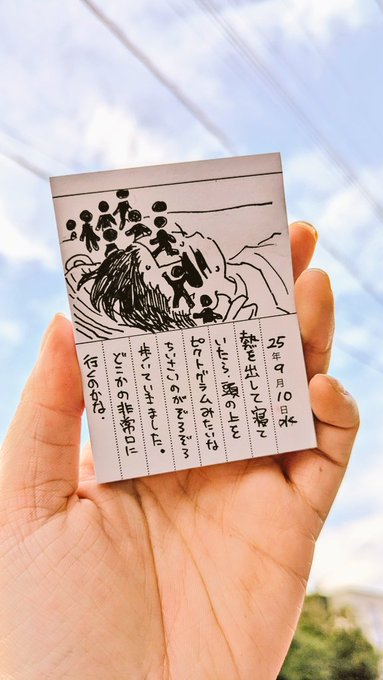 25年9月10日水
熱を出して寝て
いたら、頭の上を
ピクトグラムみたいな
ちいさいのがぞろぞろ
歩いていきました。
どこかの非常口に
行くのかな。